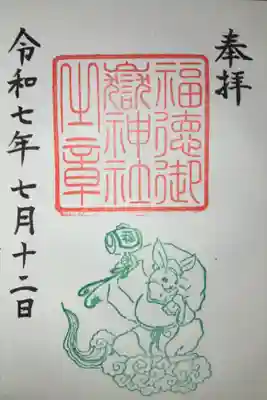 奉拝
福徳御
嶽神社
之章
令和七年七月十二日